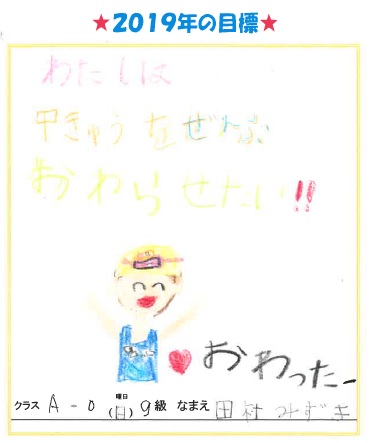 ★2019年の目標★
わたしは
甲きゅうをぜんぶ
おわらせたい!!
おわったー
クラス A-0 曜日(日) 9級 なまえ 田村みずき